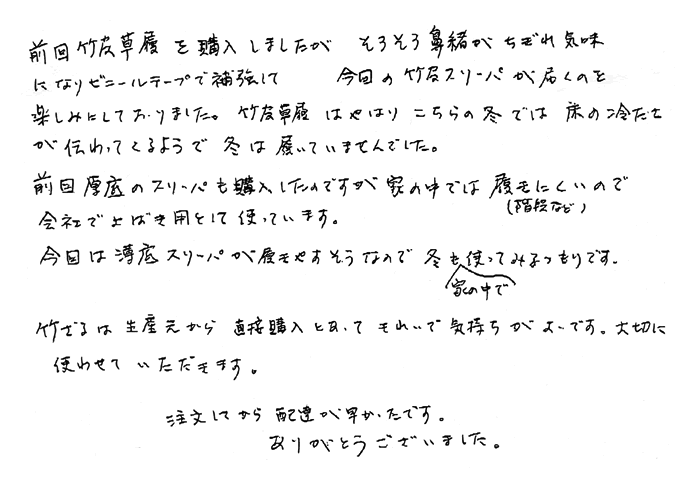 前回 竹皮草履 を 購入しましたが そろそろ鼻緒が ちぎれ気味
になりビニールテープで補強して 今回の 竹皮スリーパが届くのを
楽しみにしておりました。 竹皮草履 はやはり こちらの冬では 床の冷たさ
が 伝わってくるようで 冬は 履いていませんでした。
前回 厚底のスリーパも購入したのですが 家の中では 履きにくいので
(階段など)
会社で上ばき用として 使っています。
今回は 薄底スリーパが履きやすそうなので 冬も使ってみるつもりです。
家の中で
竹ざるは 生産元から 直接購入とあって きれいで 気持ちが よいです。大切に
使わせて いただきます。
注文してから 配達が早かったです。
ありがとうございました。